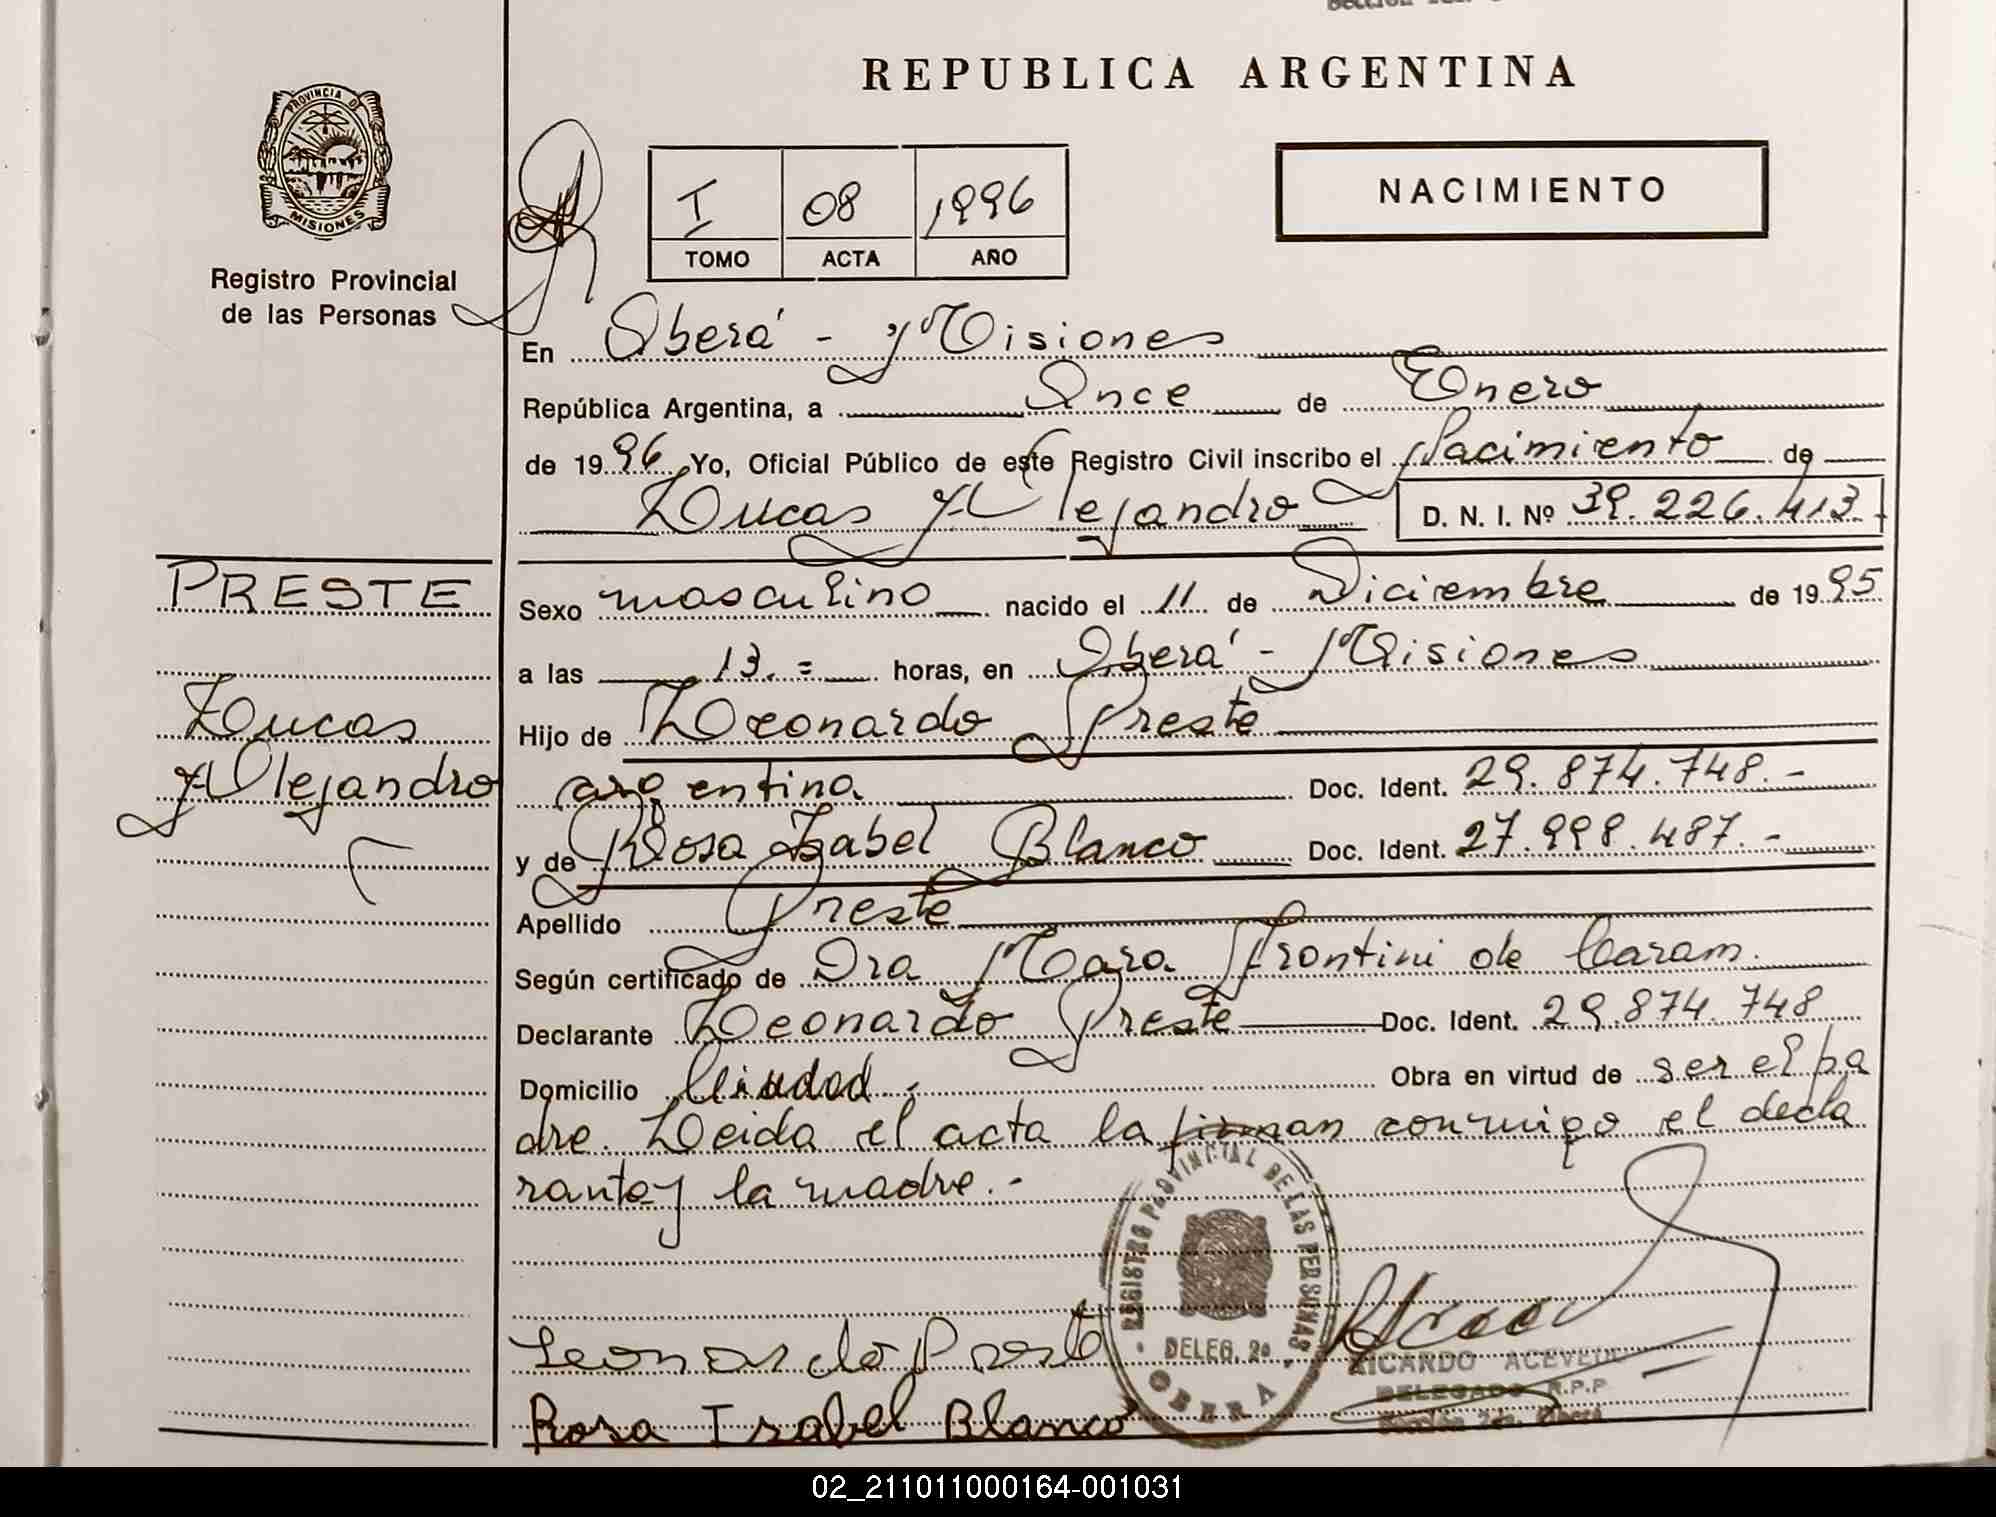 REPUBLICA ARGENTINA
PROVINCIA D
MISIONES
Registro Provincial
de las Personas
I 08 1996
TOMO ACTA AÑO
NACIMIENTO
En Oberá - Misiones
República Argentina, a Once de Enero
de 1996 Yo, Oficial Público de este Registro Civil inscribo el Nacimiento de
Lucas Alejandro D. N. I. Nº 39.226.413.-
PRESTE
Lucas
Alejandro
Sexo masculino nacido el 11 de Diciembre de 1995
a las 13.= horas, en Oberá - Misiones
Hijo de Leonardo Preste
argentina Doc. Ident. 29.874.748.-
y de Rosa Isabel Blanco Doc. Ident. 27.998.487.-
Apellido Preste
Según certificado de Dra Mara Frontini de Caram.
Declarante Leonardo Preste Doc. Ident. 29.874.748
Domicilio Ciudad.- Obra en virtud de ser el pa
dre. Leida el acta la firman conmigo el decla
rante y la madre.-
REGISTRO PROVINCIAL DE LAS PERSONAS
DELEG. 2a
OBERA
Leonardo Preste
Rosa Isabel Blanco
RICARDO ACEVEDO
DELEGADO R.P.P.
Sección 2da. Oberá
02_211011000164-001031